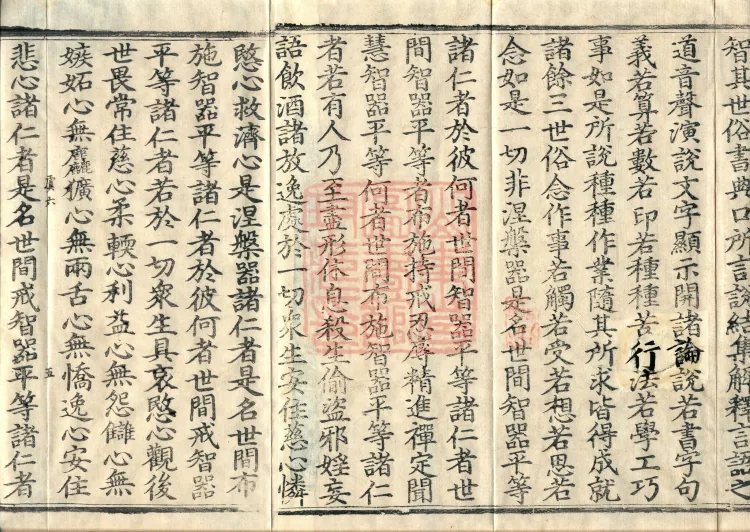 智其世俗書典口所言談結集解釋言語之
道音聲演說文字顯示開諸論說若書字句
義若算若數若印若種種苦行法若學工巧
事如是所說種種作業隨其所求皆得成就
諸餘三世俗念作事若觸若受若想若思若
念如是一切非涅槃器是名世間智器平等
諸仁者於彼何者世間智器平等諸仁者世
間智器平等者布施持戒忍辱精進禪定聞
慧智器平等何者世間布施智器平等諸仁
者若有人乃至盡形休息殺生偷盜邪婬妄
語飲酒諸放逸處於一切衆生安住慈心憐
愍心救濟心是涅槃器諸仁者是名世間布
施智器平等諸仁者於彼何者世間戒智器
平等諸仁者若於一切衆生具哀愍心觀後
世畏常住慈心柔輭心利益心無怨讎心無
嫉妬心無麤獷心無兩舌心無憍逸心安住
虞六
五
悲心諸仁者是名世間戒智器平等諸仁者